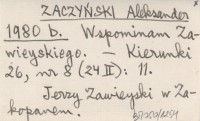 ZACZYŃSKI Aleksander
1980 b. Wspominam Za-
wieyskiego. – Kierunki
26, nr 8 (24 II): 11.
Jerzy Zawieyski w Za-
kopanem.